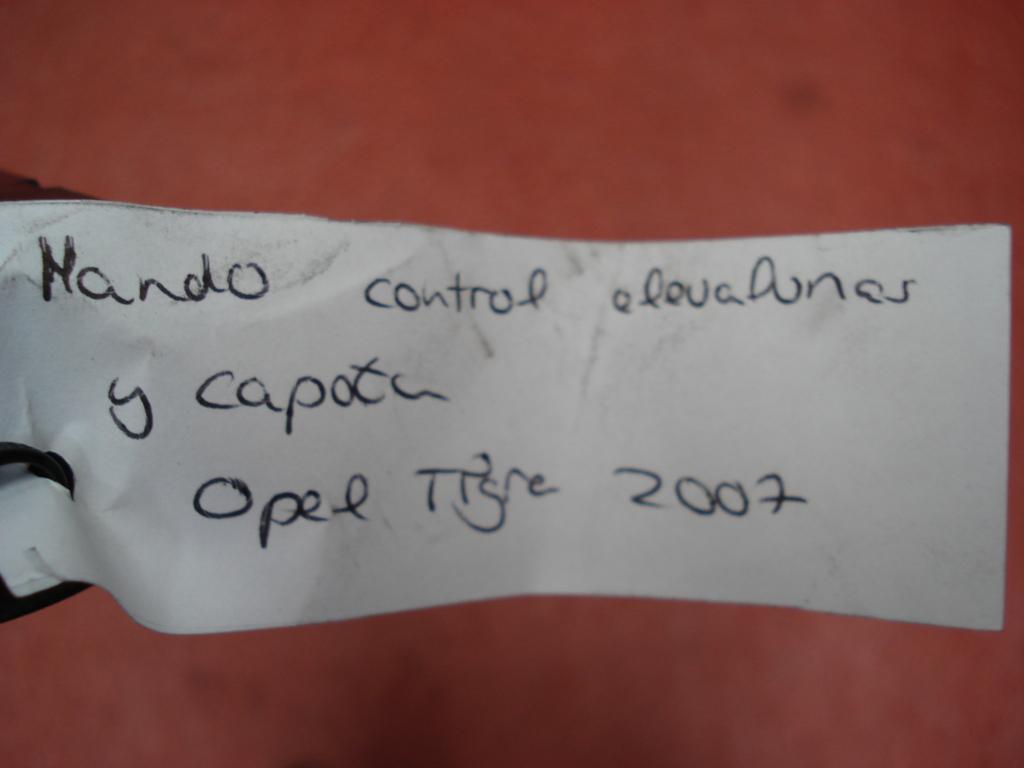 Mando control elevalunas
y capota
Opel Tigra 2007